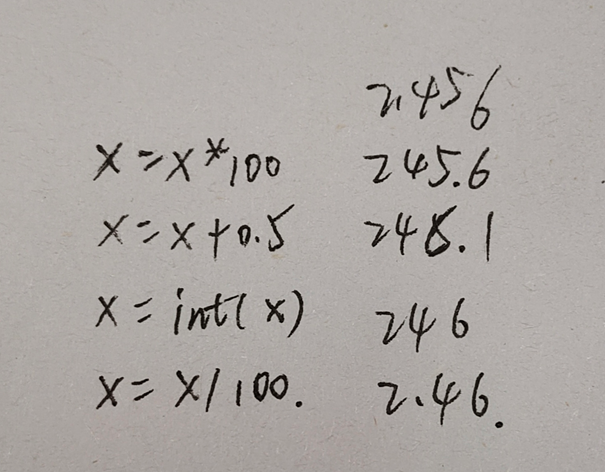 2.456
x=x*100 245.6
x=x+0.5 246.1
x=int(x) 246
x=x/100. 2.46.